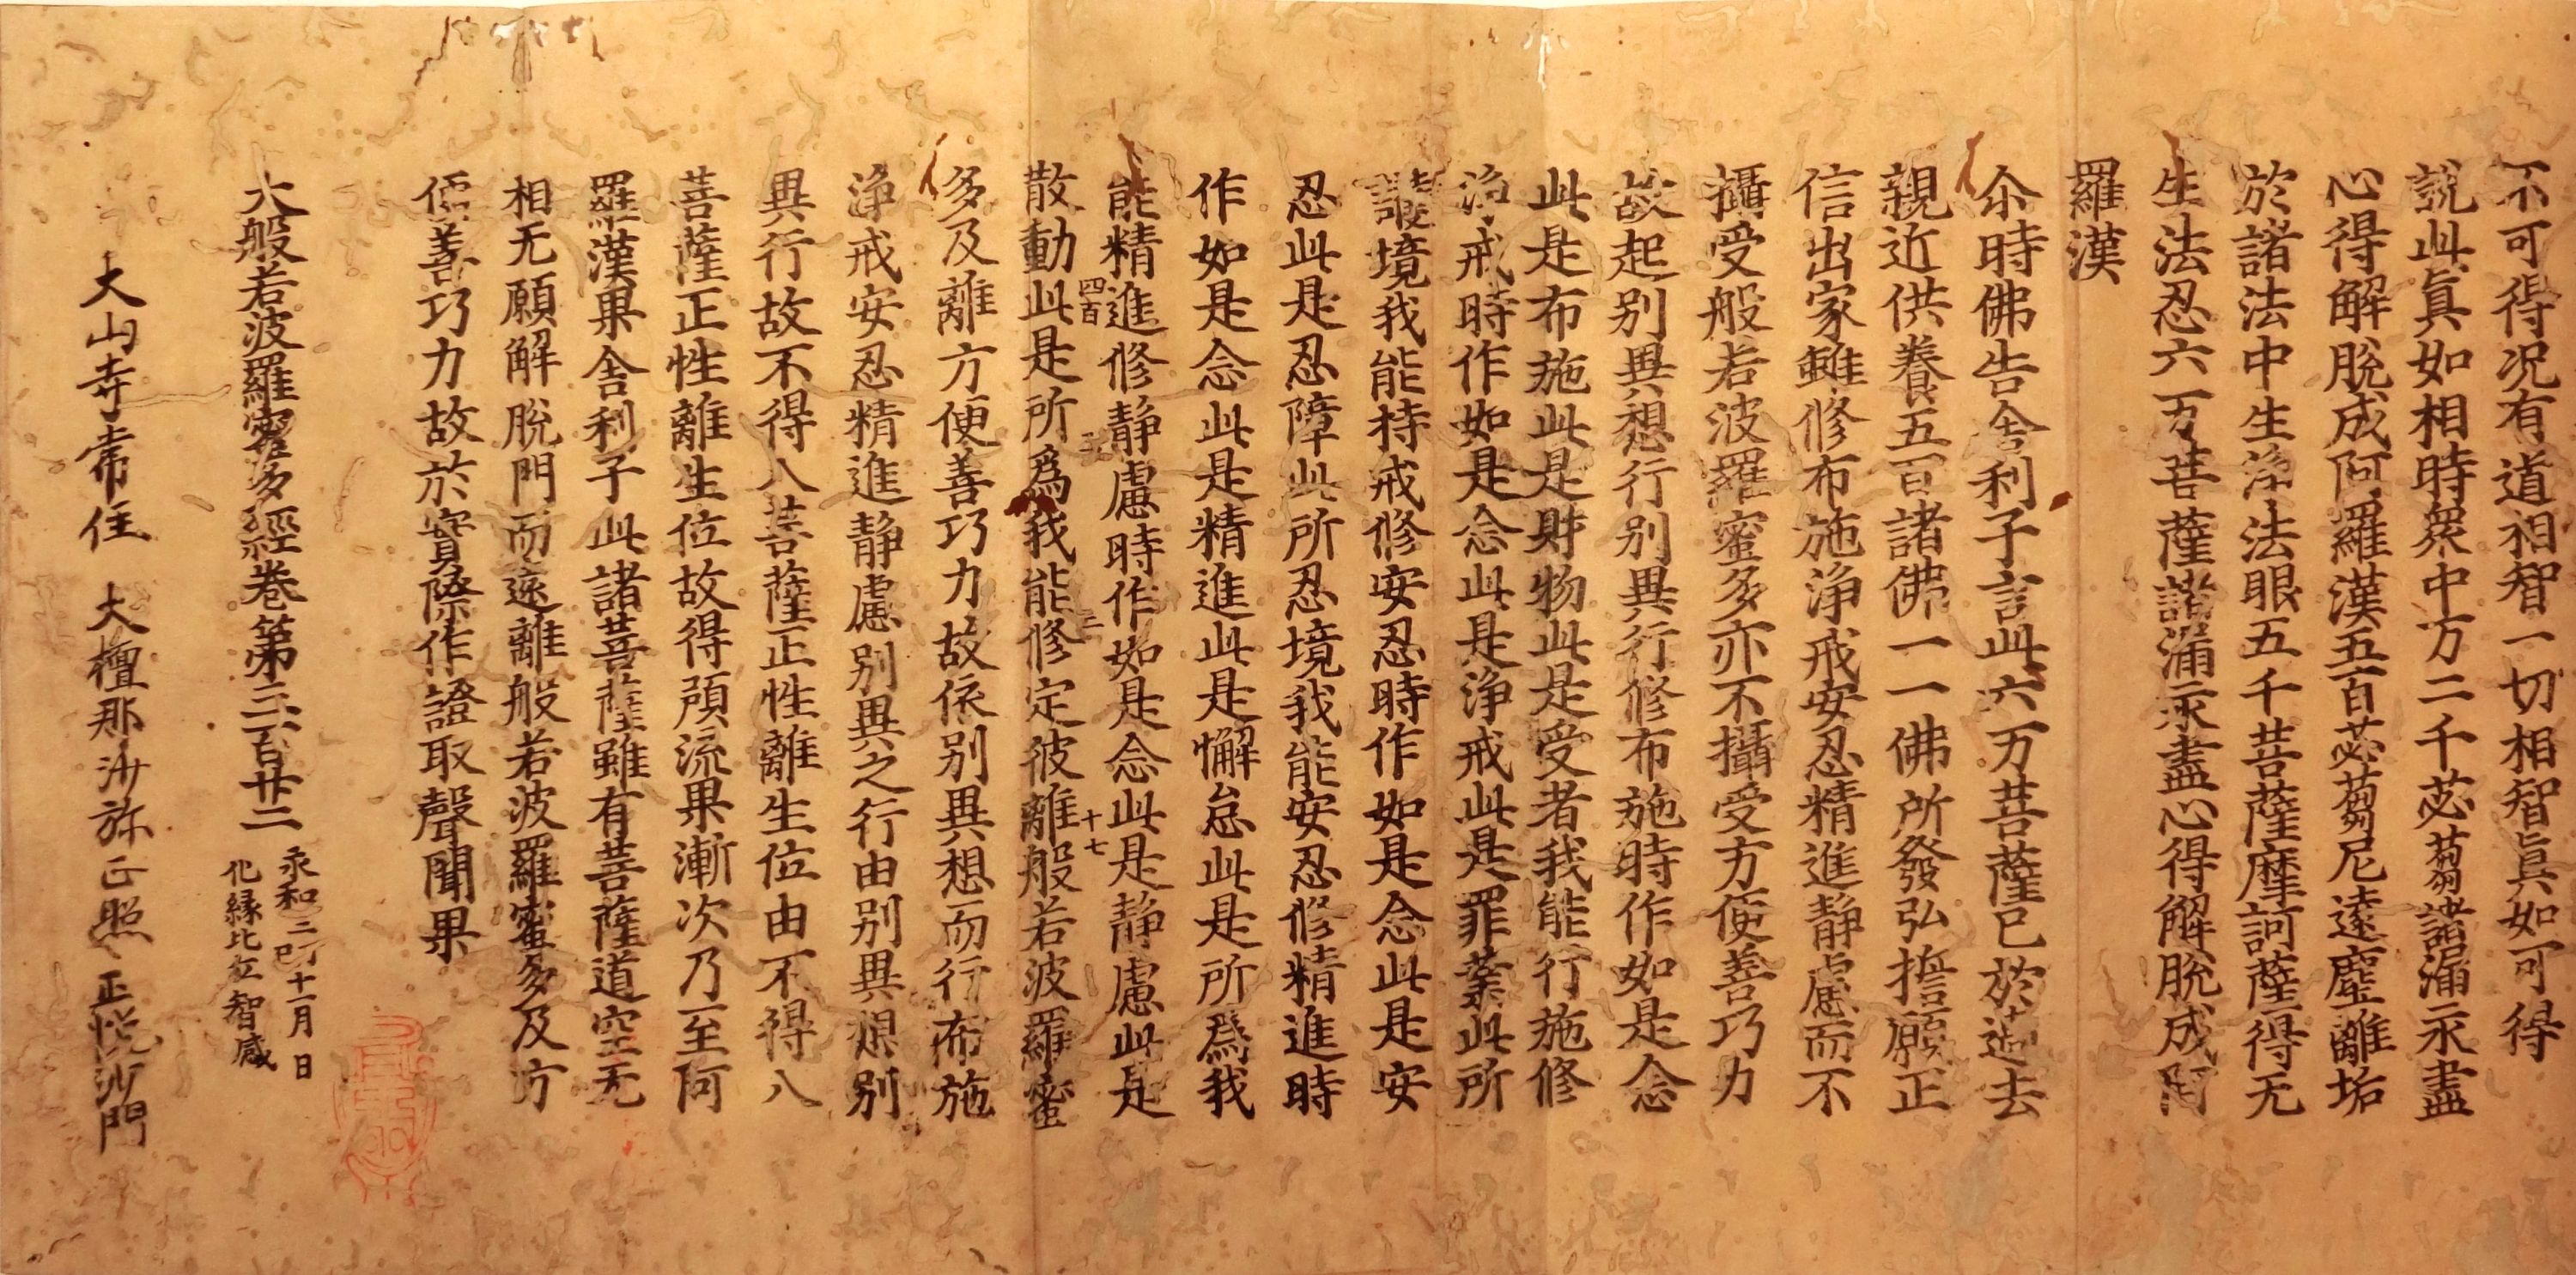 不可得况有道相智一切相智眞如可得
說此眞如相時衆中万二千苾蒭諸漏永盡
心得解脫成阿羅漢五百苾蒭尼遠塵離垢
於諸法中生淨法眼五千菩薩摩訶薩得无
生法忍六万菩薩諸漏永盡心得解脫成阿
羅漢
尒時佛告舍利子言此六万菩薩已於過去
親近供養五百諸佛一一佛所發弘擔願正
信出家雖修布施淨戒安忍精進靜慮而不
攝受般若波羅蜜多亦不攝受方便善巧力
故起别異想行别異行修布施時作如是念
此是布施此是財物此是受者我能行施修
淨戒時作如是念此是淨戒此是罪業此所
護境我能持戒修安忍時作如是念此是安
忍此是忍障此所忍境我能安忍修精進時
作如是念此是精進此是懈怠此是所爲我
能精進修靜慮時作如是念此是靜慮此是
四百 十七
散動此是所爲我能修定彼離般若波羅蜜
多及離方便善巧力故依别異想而行布施
淨戒安忍精進靜慮别異之行由别異想别
異行故不得入菩薩正性離生位由不得入
菩薩正性離生位故得預流果漸次乃至阿
羅漢果舍利子此諸菩薩雖有菩薩道空无
相无願解脫門而遠離般若波羅蜜多及方
便善巧力故於實際作證取聲聞果
大般若波羅蜜多經卷第三百廿二
永和三丁巳十一月 日
化縁比丘智感
大山寺常住 大檀那沙弥正照 正悦沙門